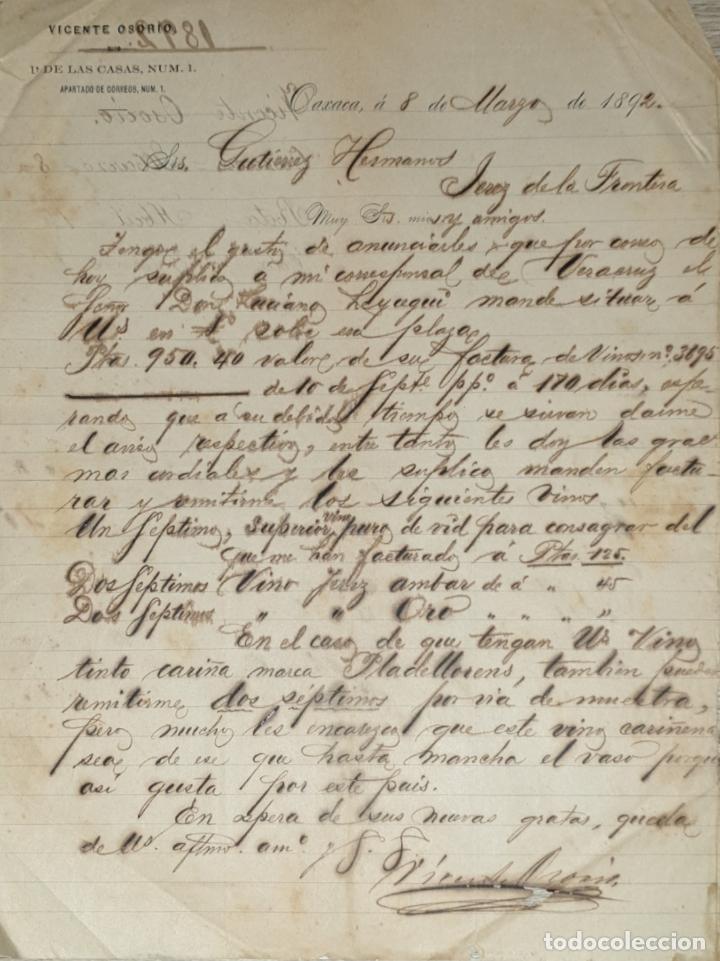 VICENTE OSORIO,
1892
1ª DE LAS CASAS, NUM. 1.
APARTADO DE CORREOS, NUM. 1.
Oaxaca, á 8 de Marzo de 1892.
Srs. Gutierrez Hermanos
Jerez de la Frontera
Muy Srs. mios y amigos.
Tengo el gusto de anunciarles que por correo de
hoy suplico á mi corresponsal de Veracruz el
Señor Don Luciano mande situar á
Us en sobre esa plaza
Ptas. 950.40 valor de su factura de Vinos nº 3695
de 10 de Septe. ppº á 170 dias, espe-
rando que á su debido tiempo se sirvan darme
el aviso respectivo, entre tanto les doy las gracias
mas cordiales y les suplico manden factu-
rar y remitirme los siguientes vinos
Un Septimo, Superior Vino puro de vid para consagrar del
que me han facturado á Ptas. 125.
Dos Septimos Vino Jerez ambar de á " 45
Dos Septimos " " Oro " " " "
En el caso de que tengan Us Vino
tinto cariña marca Pladellorens, tambien pueden
remitirme dos séptimos por via de muestra,
pero mucho les encarezco que este vino cariñena
sea de ese que hasta mancha el vaso porque
así gusta por este pais.
En espera de sus nuevas gratas, queda
de Us. afmo. amº. y S. S.
Vicente Osorio
todocoleccion